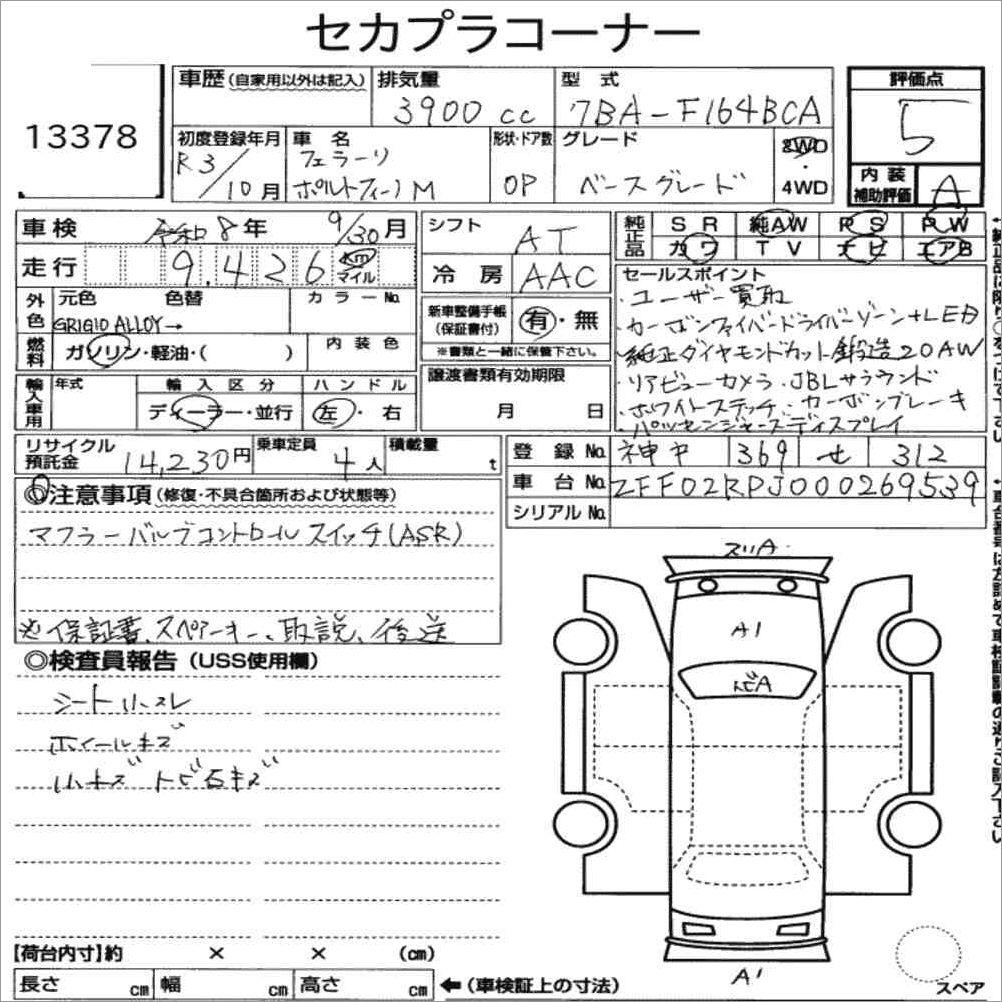 セカプラコーナー
13378
車歴(自家用以外は記入)
排気量
3900 cc
型式
7BA-F164BCA
評価点
5
初度登録年月
R3/10月
車名
フェラーリ
ポルトフィーノM
形状・ドア数
OP
グレード
ベースグレード
2WD
4WD
内装
補助評価
A
車検
令和8年 9/30月
走行
9.426
Km
マイル
シフト
AT
冷房
AAC
純正品
SR 純AW PS PW
カワ TV ナビ エアB
外色
元色 色替
GRIGIO ALLOY→
カラーNo.
燃料
ガソリン・軽油・( )
内装色
新車整備手帳
(保証書付)
有・無
※書類と一緒に保管下さい。
セールスポイント
・ユーザー買取
・カーボンファイバードライバーゾーン+LED
・純正ダイヤモンドカット鍛造20AW
・リアビューカメラ・JBLサラウンド
・ホワイトステッチ・カーボンブレーキ
・パッセンジャーズディスプレイ
輸入車用
年式
輸入区分
ディーラー・並行
ハンドル
左・右
譲渡書類有効期限
月 日
リサイクル
預託金
14,230円
乗車定員
4人
積載量
t
登録No.
神戸 369 せ 312
車台No.
ZFF02RPJ000269539
シリアルNo.
◎注意事項(修復・不具合箇所および状態等)
マフラーバルブコントロールスイッチ(ASR)
※保証書、スペアーキー、取説、後送
◎検査員報告(USS使用欄)
シート小スレ
ホイールキズ
小キズ トビ石キズ
スリA
A1
トビA
A1
【荷台内寸】約 × × (cm)
長さ cm 幅 cm 高さ cm
←(車検証上の寸法)
スペア